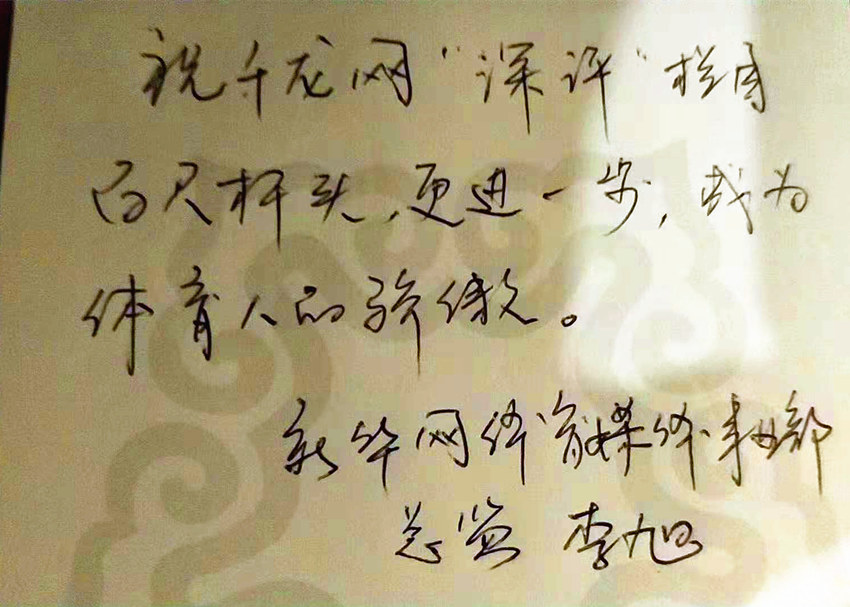 祝千龙网“深评”栏目
百尺杆头,更进一步,成为
体育人的骄傲。
新华网体育媒体事业部
总监 李旭